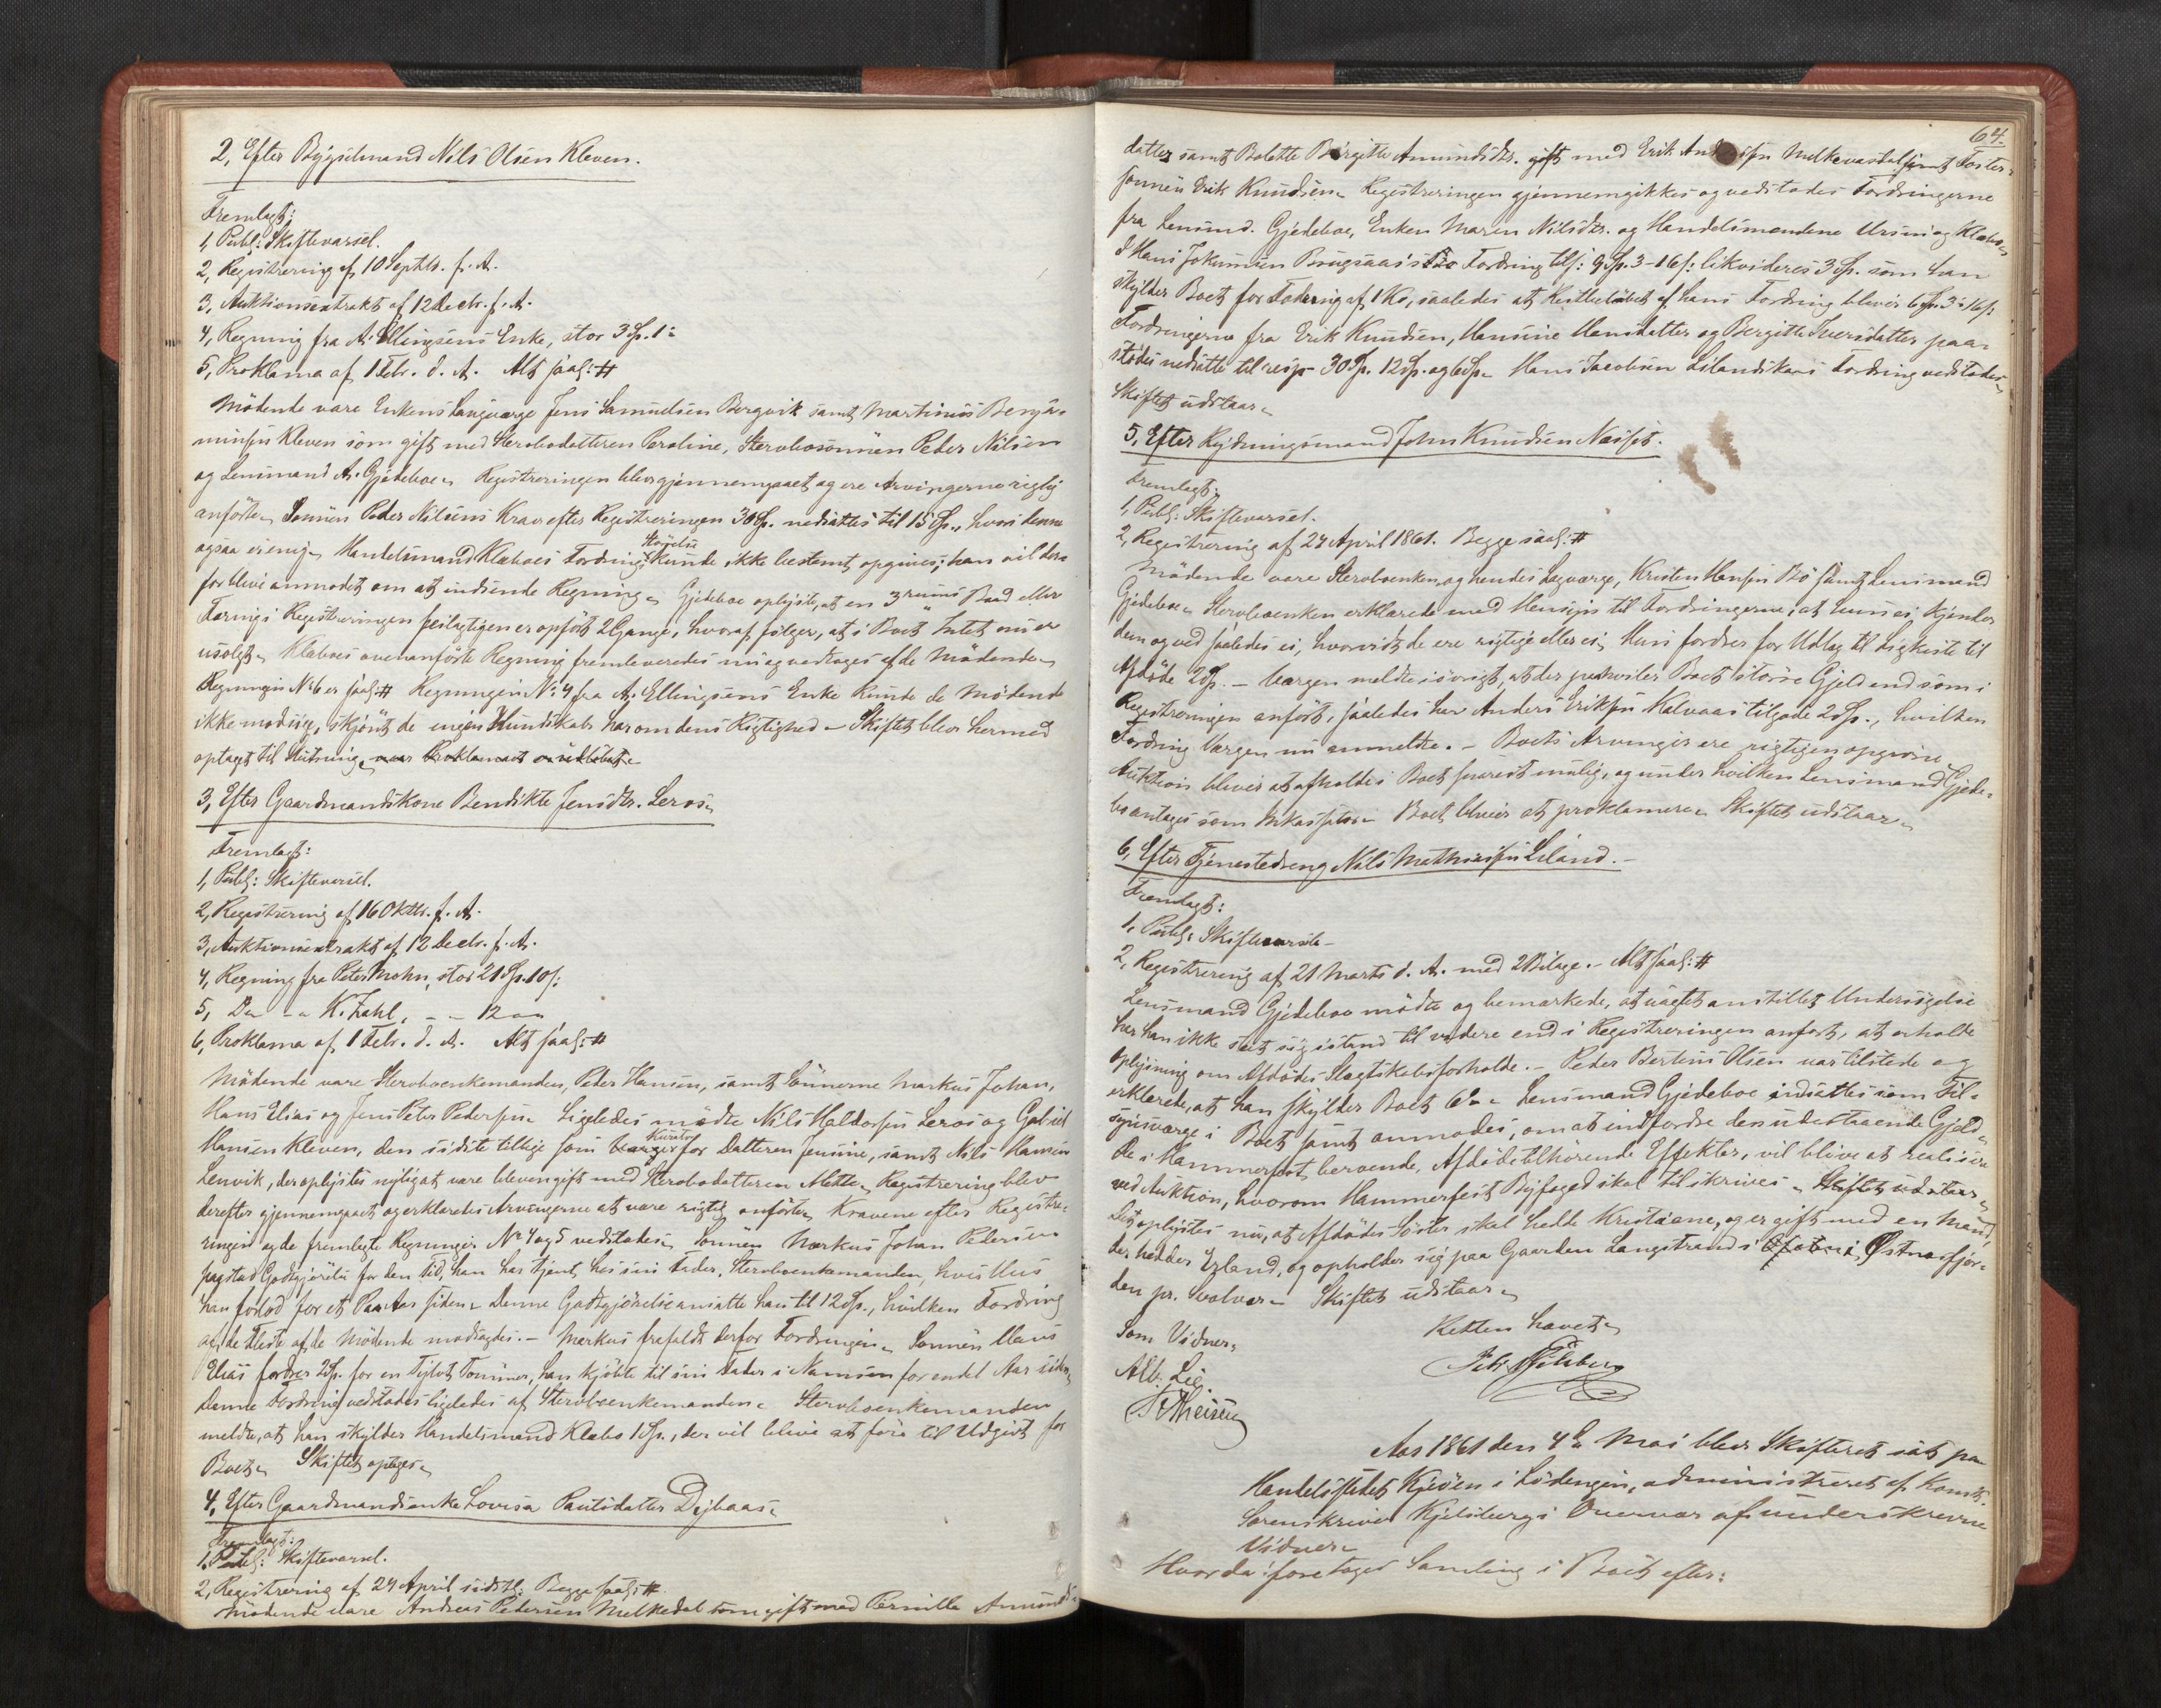 2, Efter Bygselmand Nils Olsen Kleven.
Fremlagt:
1, Publ: Skiftevarsel.
2, Registrering af 10 Septbr. f. A.
3, Auktionsextrakt af 12 Decbr. f. A.
4, Regning fra A. Ellingsens Enke, stor 3 Sp. 1
5, Proklama af 1 Febr. d. A. Alt saal: #
Mødende vare Enkens Laugværge Jens Samuelsen Bergvik samt Martinus Benja-
minsen Kleven som gift med Sterbodatteren Peroline, Stervbosønnen Peder Nilsen
og Lensmand A. Gjedeboe. Registreringen blev gjennemgaaet og ere Arvingerne rigtig
anførte. Sønnen Peder Nilsens Krav efter Registreringen 30 Sp. nedsattes til 15 Sp., hvori denne
ogsaa er enig. Handelsmand Klæboes Fordrings Størrelse kunde ikke bestemt opgives; han vil der-
for blive anmodet om at indsende Regning. Gjedeboe oplyste, at en 3 rums Baad eller
Færing i Registreringen feilagtigen er opført 2 Gange, hvoraf følger, at i Boet Intet nu er
usolgt. Klæboes ovenanførte Regning fremleveredes nu og vedtoges af de Mødende.
Regningen No 6 er saal: # Regningen No 4 fra A. Ellingsens Enke kunde de Mødende
ikke modsige, skjønt de ingen Kundskab har om dens Rigtighed. Skiftet blev hermed
optaget til Slutning, naar Proklamaet er udløbet.
3, Efter Gaardmandskone Bendikte Jensdtr. Leros.
Fremlagt:
1, Publ: Skiftevarsel.
2, Registrering af 16 Oktbr. f. A.
3, Auktionsextrakt af 12 Decbr. f. A.
4, Regning fra Peter Mohn, stor 21 Sp. 10 s:
5, Do - K. Zahl, - - 12
6, Proklama af 1 Febr. d. A. Alt saal: #
Mødende vare Stervboenkemanden, Peder Hansen, samt Sønnerne Markus Johan,
Hans Elias og Jens Peter Pedersen. Ligeledes mødte Nils Haldorsen Leros og Gabriel
Hansen Kleven, den sidste tillige som Værge Kurator for Datteren Jensine, samt Nils Hansen
Lenvik, der oplystes nyligst være bleven gift med Sterbodatteren Mette. Registrering blev
derefter gjennemgaaet og erklæredes Arvingerne at være rigtig anførte. Kravene efter Registre-
ringen og de fremlagte Regninger No 4 og 5 vedstodes. Sønnen Markus Johan Pedersen
paastod Godtgjørelse for den Tid, han har tjent hos sin Fader, Stervboenkemanden, hvis Hus
han forlod for et Par Aar siden. Denne Godtgjørelse ansatte han til 12 Sp., hvilken Fordring
af de Fleste af de Mødende modsagdes. Markus frafaldt derfor Fordringen. Sønnen Hans
Elias fordrer 2 Sp. for en Tylvt Tømmer, han kjøbte til sin Fader i Namsen for endel Aar siden.
Denne Fordring vedstodes ligeledes af Stervboenkemanden. Stervboenkemanden
meldte, at han skylder Handelsmand Klæbo 1 Sp., der vil blive at føre til Udgivt for
Boet. Skiftet optoges.
4, Efter Gaardmandsenke Lovisa Paulsdatter Dejbaas.
Fremlagt:
1, Publ: Skiftevarsel.
2, Registrering af 24 April sidstl: Begge saal: #
Mødende vare Andreas Pedersen Melkedal som gift med Pernille Amunds-
64.
datter samt Bolette Birgitte Amundsdtr. gift med Erik Melkevardal samt Foster-
sønnen Erik Knudsen. Registreringen gjennemgikkes og vedstodes Fordringerne
fra Lensmd. Gjedeboe, Enken Maren Nilsdtr. og Handelsmændene Ursin og Klæbo.
I Hans Jokumsen Fordring 9 Sp. 3-16 s: likvideres 3 Sp. som han
skylder Boet for Fodring af 1 Ko, saaledes at Restbeløbet af hans Fordring bliver 6 Sp. 3-16 s:
Fordringerne fra Erik Knudsen, Hansine Hansdatter og Bergitte Sversdatter paa-
stodes nedsatte til resp. 30 Sp. 12 Sp. og 6 Sp. Hans Jacobsen Lilandskars Fordring vedstodes.
Skiftet udstaar.
5, Efter Rydningsmand John Knudsen Næsset.
Fremlagt:
1, Publ: Skiftevarsel.
2, Registrering af 24 April 1861. Begge saal: #
Mødende vare Stervboenken, og hendes Lagværge, Kristen Hansen Bø samt Lensmand
Gjedeboe. Stervboenken erklærede med Hensyn til Fordringerne, at hun ei kjender
dem og ved saaledes ei, hvorvidt de ere rigtige eller ei. Hun fordrer for Udlæg til Ligkiste til
Afdøde 2 Sp. - Værgen meldte iøvrigt, at der paahviler Boet større Gjeld end som i
Registreringen anført, saaledes har Anders Eriksen Kalvaas tilgode 2 Sp., hvilken
Fordring Værgen nu anmeldte. - Boets Arvinger ere rigtigen opgivne
Auktion bliver at afholde i Boet snarest mulig, og under hvilken Lensmand Gjede-
bo antages som Inkassator. Boet bliver at proklamere. Skiftet udstaar.
6, Efter Tjenestedreng Nils Mathisen Liland.
Fremlagt:
1, Publ: Skiftevarsel
2, Registrering af 21 Marts d. A. med 2 Bilage. Alt saal: #
Lensmand Gjedeboe mødte og bemærkede, at uagtet anstillet Undersøgelse
har han ikke seet sig istand til videre end i Registreringen anført, at erholde
oplysning om Afdødes Slægtskabsforholde. - Peder Bertheus Olsen var tilstede og
erklærede, at han skylder Boet Lensmand Gjedeboe indsattes som Til-
synsværge i Boet samt anmodes, om at indfordre den udestaaende Gjeld.
De i Hammerfest beroende, Afdøde tilhørende Effekter, vil blive at realisere
ved Auktion, hvorom Hammerfest Byfoged skal tilskrives. Skiftet udstaar.
Det oplystes nu, at Afdødes Søster skal hedde Kristiane, og er gift med en Mand,
der hedder Erland, og opholder sig paa Gaarden Langstrand i Ofoten i Østnæsfjor-
den pr. Svolvær. Skiftet udstaar.
Som Vidner,
Retten hævet.
Alb. Lie.
Aar 1861 den 4de Mai blev Skifteret sat paa
Handelsstedet Kjeøen i Lødengen, administreret af Konst.
Sorenskriver Kjelsberg i Overvær af underskrevne
Vidner.
Hvorda foretoges Samling i Boet efter: